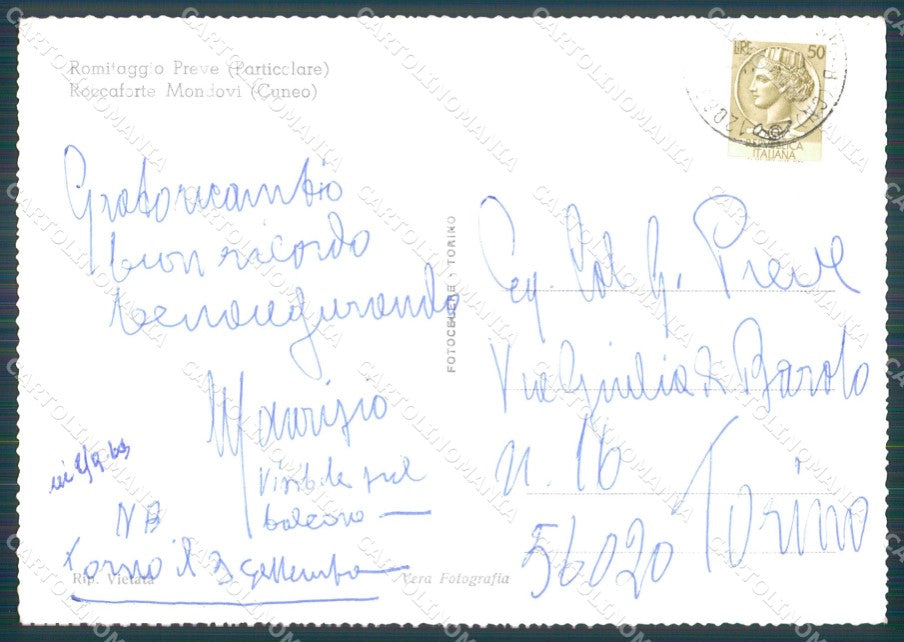 Romitaggio Preve (Particolare)
Roccaforte Mondovi (Cuneo)
LIRE 50
ITALIANA
Grato ricambio
buon ricordo
bene augurando
Maurizio
visibile sul
balcone
NB
Torno il 3 settembre
Rip. Vietata
Vera Fotografia
FOTOCELERE - TORINO
Eg. Col. G. Preve
Via Giulia di Barolo
n. 16
56020 Torino
CARTOLINOMANIA